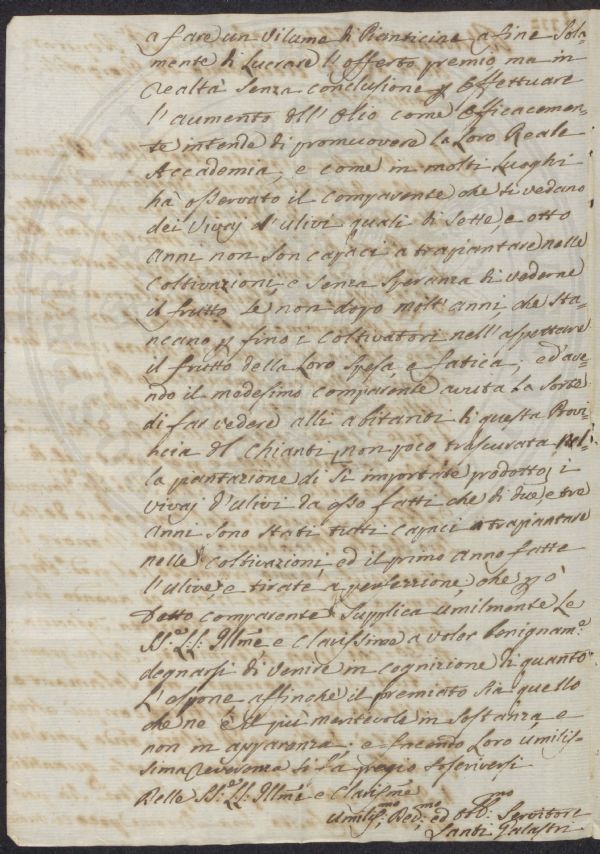 a fare un Vilume di Pianticine a fine Sola-
mente di Lucrare l'offerto premio, ma in
realtà Senza conclusione p Effettuare
l'aumento dll' Olio come Efficacemen-
te intende di promuovere la Loro Reale
Accademia, e come in molti Luoghi
hà osservato il Comparente, che si vedano
dei Vivaj d'Ulivi quali di Sette, e otto
anni non son capaci a trapiantare nelle
coltivazioni, e Senza Speranza di vederne
il frutto Se non dopo molt'anni, che Sta-
ncano p fino i Coltivatori nell'aspettare
il frutto della Loro Spesa, e fatica; ed ave-
ndo il medesimo Comparente avuta La Sorte
di far vedere alli abitanti di questa Provi-
ncia del Chianti, non poco trascurata nel-
la pantazione di Si importate prodotto, i
vivaj d'ulivi da esso fatti che di due, e tre
anni Sono Stati tutti Capaci a trapiantare
nelle Coltivazioni, ed il primo anno fatte
l'ulive, e tirate a perfezzione, che p ò
Detto Comparente Supplica Umilmente Le
SS.e LL. Illme e Clarissime a voler benignam.e
degnarsi di venire in cognizione di quanto
L'espone affinchè il premiato Sia quello
che ne è il più meritevole in Sostanza, e
non in apparenza; e facendo Loro Umilis-
sima reverenza Si fà pregio Soscriversi
Delle SS.e LL. Illme e Clarisme
Umiliss.mo Dev.mo ed Obb.mo Servitore
Santi Galastri